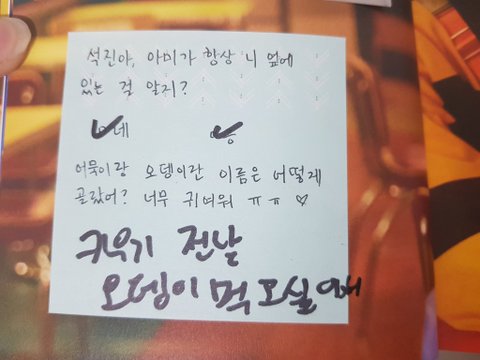 석진아, 아미가 항상 니 옆에
있는 걸 알지?
네 응
어묵이랑 오뎅이란 이름은 어떻게
골랐어? 너무 귀여워 ㅠㅠ ♡
키우기 전날
오뎅이 먹고싶어